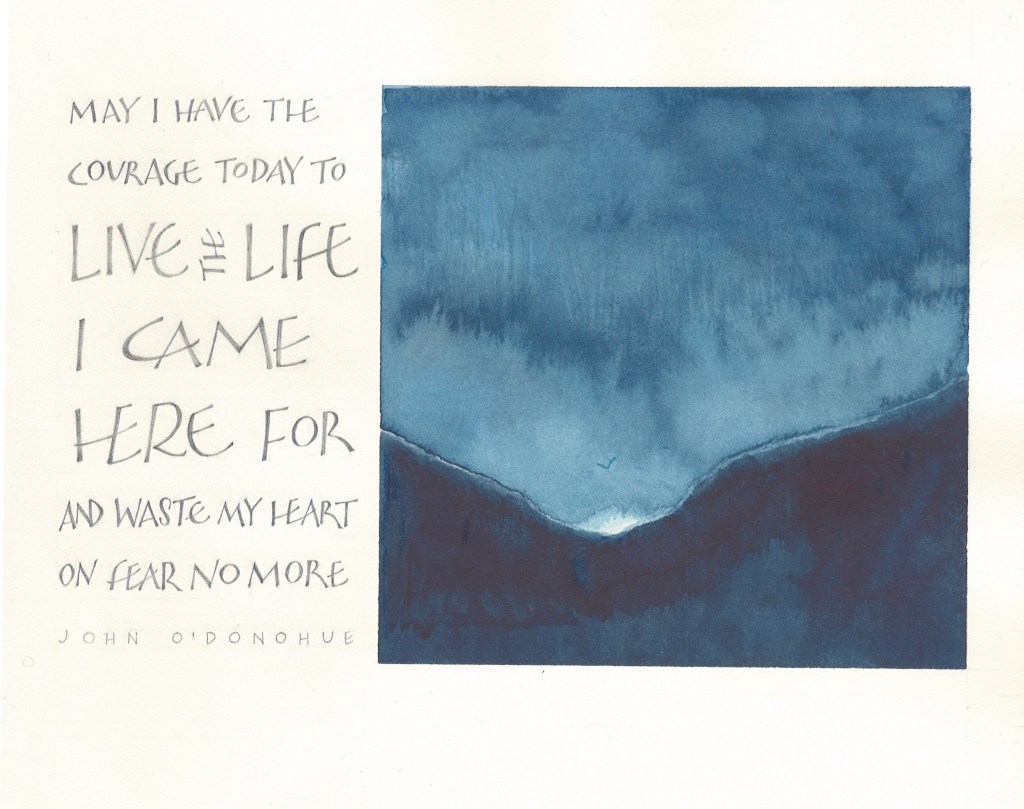 MAY I HAVE THE
COURAGE TODAY TO
LIVE THE LIFE
I CAME
HERE FOR
AND WASTE MY HEART
ON FEAR NO MORE
JOHN O'DONOHUE